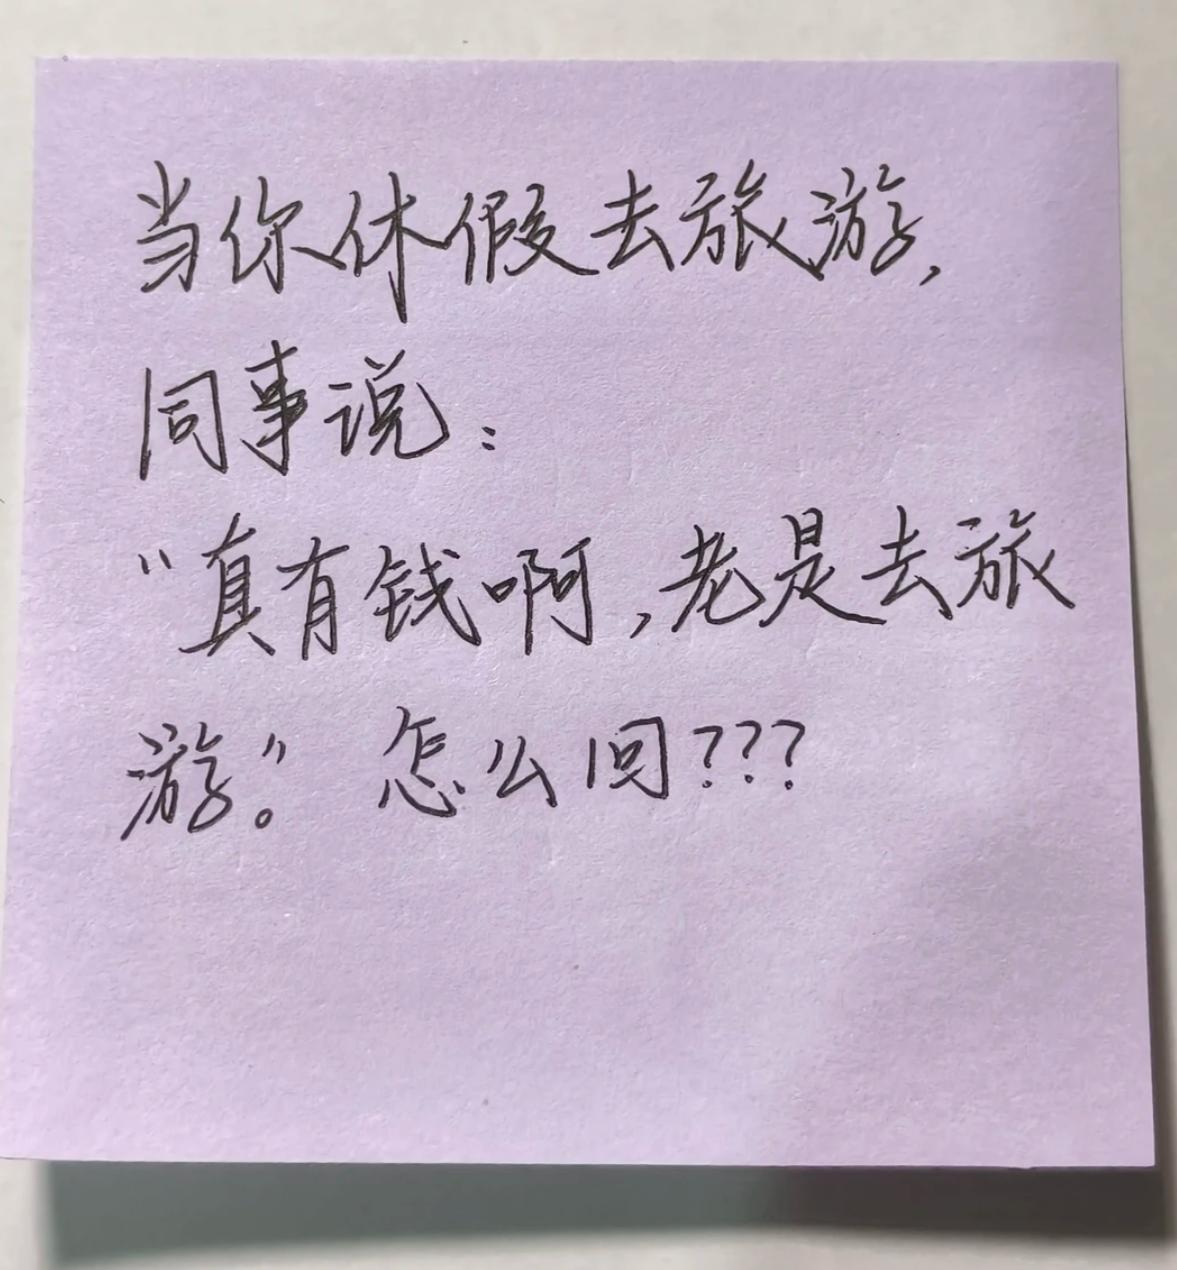 当你休假去旅游,
同事说:
“真有钱啊,老是去旅
游。” 怎么回???